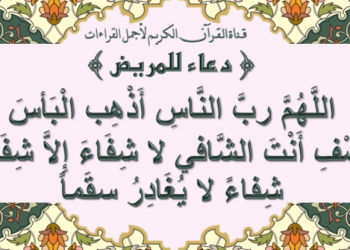 قناة القرآن الكريم لأجمل القراءات
﴿ دعاء للمريض ﴾
اللَّهُمَّ رَبَّ النَّاسِ أَذْهِبِ الْبَأسَ
أَنْتَ الشَّافي لا شِفَاءَ إِلاَّ
شِفاءً لا يُغَادِرُ سقَماً